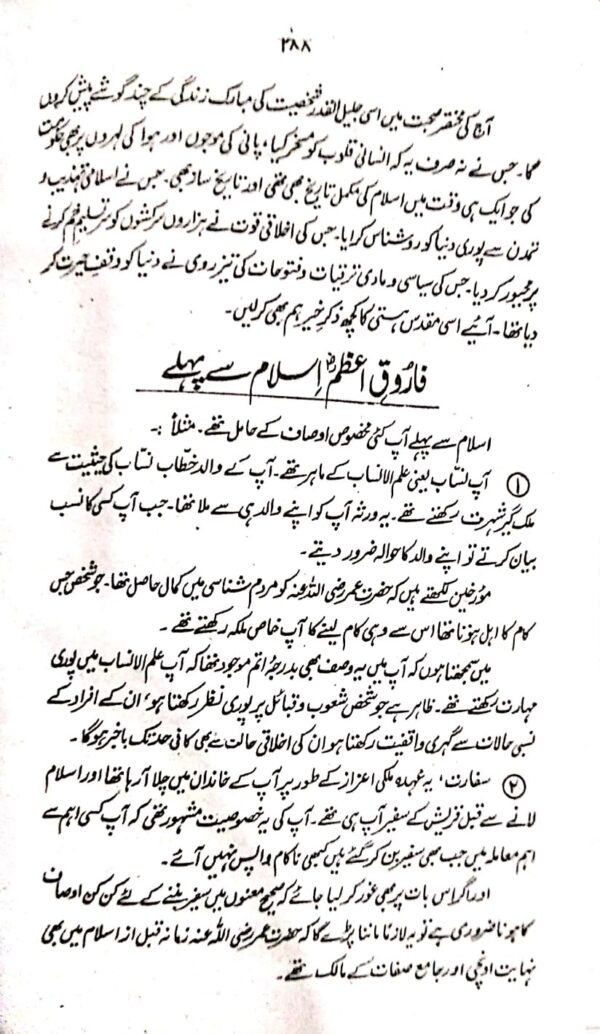 ۲۸۸
آج کی مختصر صحبت میں اسی جلیل القدر شخصیت کی مبارک زندگی کے چند گوشے پیش کروں
گا۔ جس نے نہ صرف یہ کہ انسانی قلوب کو مسخر کیا، پانی کی موجوں اور ہوا کی لہروں پر بھی حکومت
کی جو ایک ہی وقت میں اسلام کی مکمل تاریخ بھی تھی اور تاریخ ساز بھی۔ جس نے اسلامی تہذیب و
تمدن سے پوری دنیا کو روشناس کرایا۔ جس کی اخلاقی قوت نے ہزاروں سرکشوں کو سر تسلیم خم کرنے
پر مجبور کر دیا۔ جس کی سیاسی و مادی ترقیات و فتوحات کی تیز روی نے دنیا کو وقف حیرت کر
دیا تھا۔ آئیے اسی مقدس ہستی کا کچھ ذکر خیر ہم بھی کر لیں۔
فاروق اعظمؓ اسلام سے پہلے
اسلام سے پہلے آپ کئی مخصوص اوصاف کے حامل تھے۔ مثلاً :۔
① آپ نسّاب یعنی علم الانساب کے ماہر تھے۔ آپ کے والد خطّاب نسّاب کی حیثیت سے
ملک گیر شہرت رکھتے تھے۔ یہ ورثہ آپ کو اپنے والد ہی سے ملا تھا۔ جب آپ کسی کا نسب
بیان کرتے تو اپنے والد کا حوالہ ضرور دیتے۔
مؤرخین لکھتے ہیں کہ حضرت عمر رضی اللہ عنہ کو مردم شناسی میں کمال حاصل تھا۔ جو شخص جس
کام کا اہل ہوتا تھا اس سے وہی کام لینے کا آپ خاص ملکہ رکھتے تھے۔
میں سمجھتا ہوں کہ آپ میں یہ وصف بھی بدرجۂ اتم موجود تھا کہ آپ علم الانساب میں پوری
مہارت رکھتے تھے۔ ظاہر ہے جو شخص شعوب و قبائل پر پوری نظر رکھتا ہو، ان کے افراد کے
نسبی حالات سے گہری واقفیت رکھتا ہو ان کی اخلاقی حالت سے بھی کافی حد تک باخبر ہوگا۔
② سفارت، یہ عہدہ ملکی اعزاز کے طور پر آپ کے خاندان میں چلا آ رہا تھا اور اسلام
لانے سے قبل قریش کے سفیر آپ ہی تھے۔ آپ کی یہ خصوصیت مشہور تھی کہ آپ کسی اہم سے
اہم معاملہ میں جب بھی سفیر بن کر گئے ہیں کبھی ناکام واپس نہیں آئے۔
اور اگر اس بات پر بھی غور کر لیا جائے کہ صحیح معنوں میں سفیر بننے کے لئے کن کن اوصاف
کا ہونا ضروری ہے تو یہ لازماً ماننا پڑے گا کہ حضرت عمر رضی اللہ عنہ زمانہ قبل از اسلام میں بھی
نہایت اونچی اور جامع صفات کے مالک تھے۔